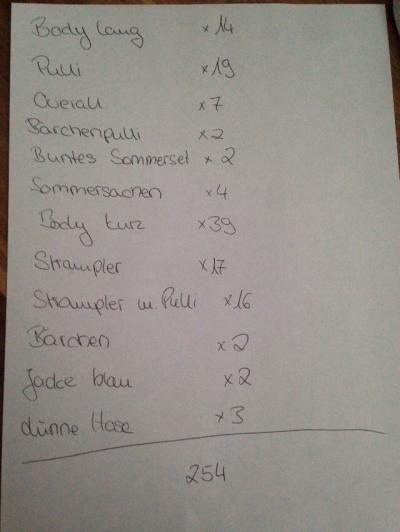 Body lang x 14
Pulli x19
Overall x7
Bärchenpulli x2
Buntes Sommerset x 2
Sommersachen x4
Body kurz x39
Strampler x17
Strampler m. Pulli x16
Bärchen x 2
Jacke blau x 2
dünne Hose x 3
254